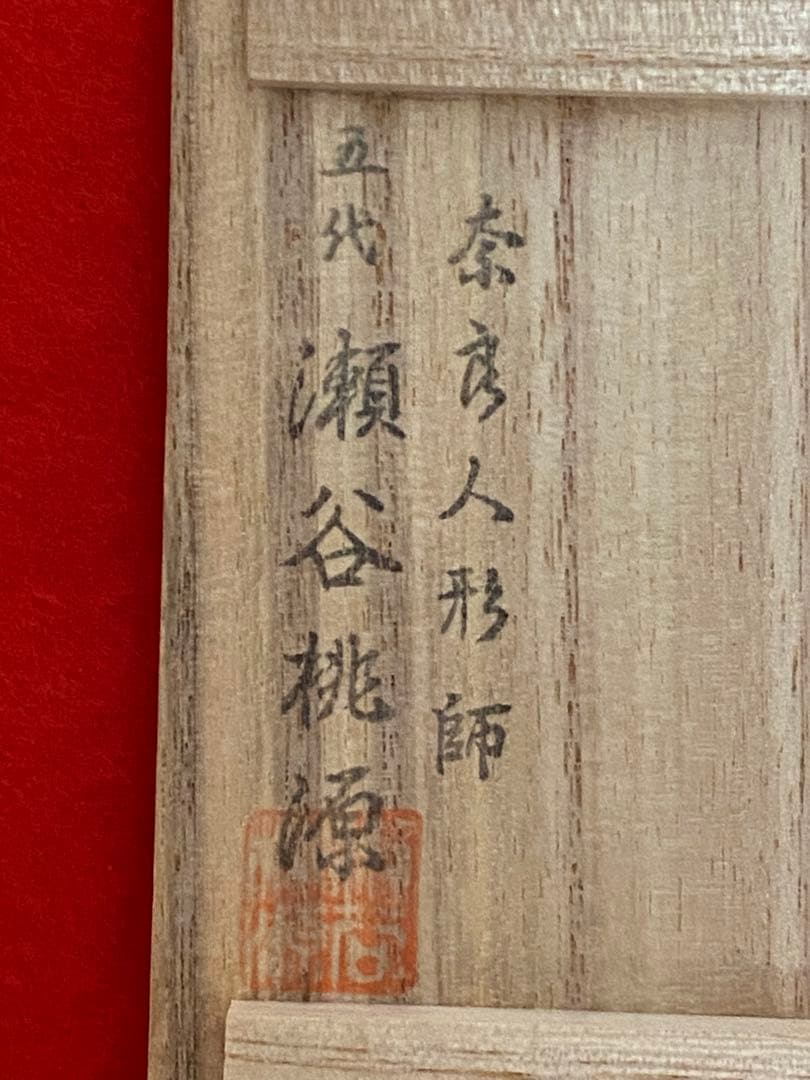 奈良人形師
五代 瀬谷桃源